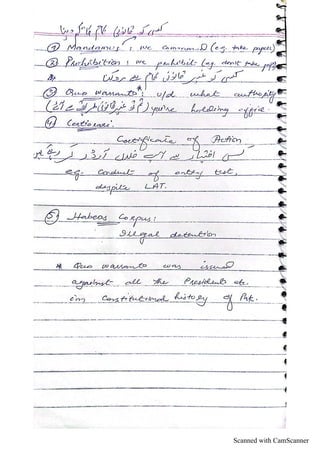 کسی کو قانونی کام کا حکم دینا
① Mandamus: we command (eg. take papers)
② Prohibition: we prohibit (eg. don't take pap
* کسی کو غیر قانونی کام سے روکنا
③ Quo Warranto*: u/d what authority
you're holding office.
④ Certiorari:
Certificate of Action
کس اختیار سے آپ
eg. conduct of entry test,
despite LAT.
⑤ Habeas Corpus:
Illegal detention
* Quo warranto was issued
against all the Presidents etc.
in Constitutional history of Pak.
Scanned with CamScanner